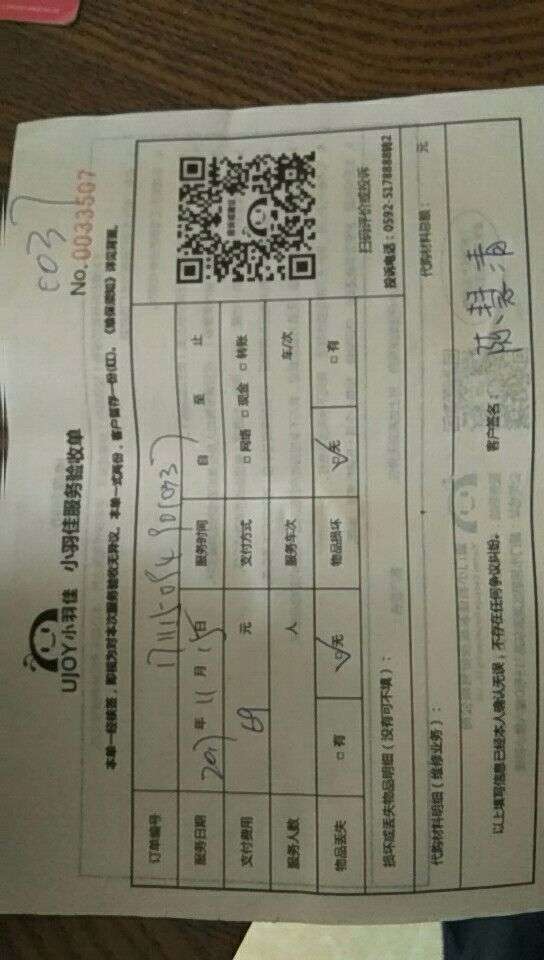 UJOY小羽佳 小羽佳服务验收单
No.0033507
本单一经核签，即视为对本次服务验收无异议。本单一式两份，客户留存一份(红)。《维保须知》详见背面。
订单编号
服务日期 2017年 11月 15日 服务时间 自 至 止
支付费用 69 元 支付方式 □网络 □现金 □转账
服务人数 人 服务车次 车/次
物品丢失 □有 □无 物品损坏 □无 □有
扫码评价或投诉
投诉电话：0592-5178888转2
损坏或丢失物品明细（没有可不填）：
代购材料明细（维修业务）： 代购材料总额： 元
以上填写信息已经本人确认无误，不存在任何争议纠纷。 客户签名：